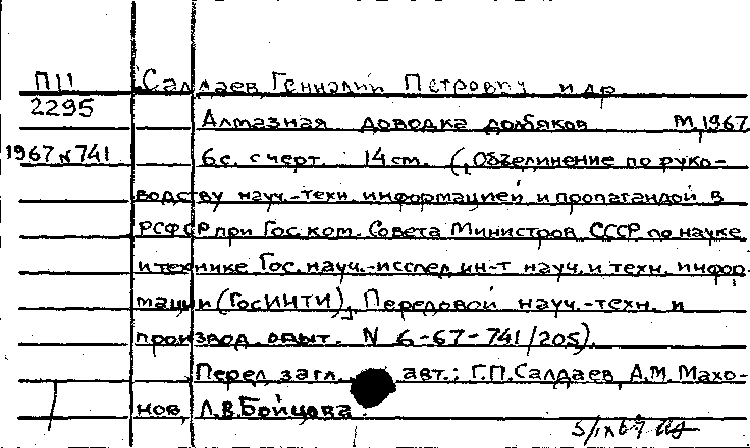 П11 Салдаев, Геннадий Петрович и др.
2295
Алмазная доводка долбяков М, 1967
1967 N 741 6с. с черт. 14см. (Объединение по руко-
водству науч.-техн. информацией и пропагандой в
РСФСР при Гос. ком. Совета Министров СССР по науке
и технике Гос. науч.-исслед. ин-т науч. и техн. инфор-
мации (ГосИНТИ), Передовой науч.-техн. и
производ. опыт. N 6-67-741/205).
Перед загл. авт.: Г.П. Салдаев, А.М. Махо-
нов, Л.В. Бойцова.
5/IX 67